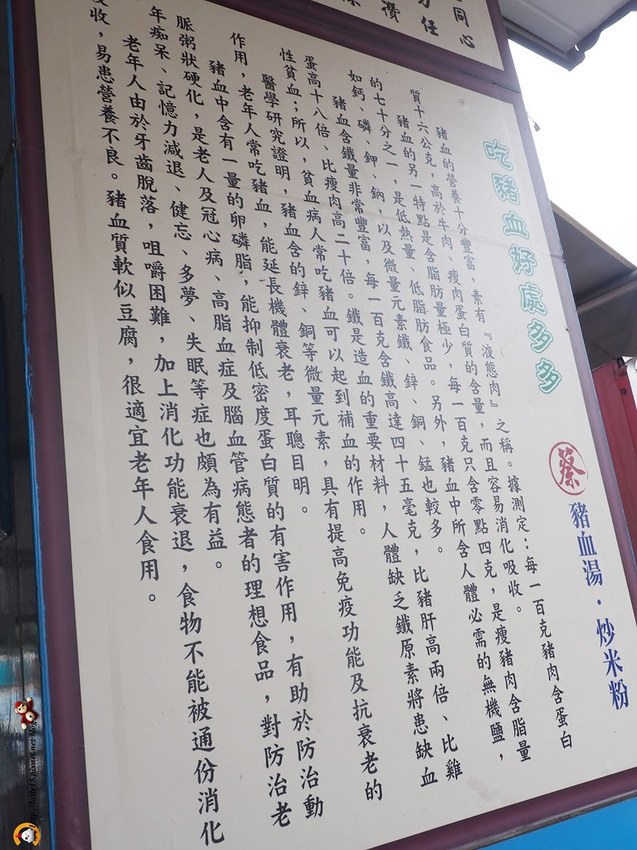 蔡 豬血湯．炒米粉
吃豬血好處多多
豬血的營養十分豐富，素有『液態肉』之稱。據測定：每一百克豬肉含蛋白
質十六公克，高於牛肉、瘦肉蛋白質的含量，而且容易消化吸收。
豬血的另一特點是含脂肪量極少，每一百克只含零點四克，是瘦豬肉含脂量
的七十分之一，是低熱量、低脂肪食品。另外，豬血中所含人體必需的無機鹽，
如鈣、磷、鉀、鈉，以及微量元素鐵、鋅、銅、錳也較多。
豬血含鐵量非常豐富，每一百克含鐵高達四十五毫克，比豬肝高兩倍、比雞
蛋高十八倍、比瘦肉高二十倍。鐵是造血的重要材料，人體缺乏鐵原素將患缺血
性貧血；所以，貧血病人常吃豬血可以起到補血的作用。
醫學研究證明，豬血含的鋅、銅等微量元素，具有提高免疫功能及抗衰老的
作用，老年人常吃豬血，能延長機體衰老，耳聰目明。
豬血中含有一量的卵磷脂，能抑制低密度蛋白質的有害作用，有助於防治動
脈粥狀硬化，是老人及冠心病、高脂血症及腦血管病態者的理想食品，對防治老
年痴呆、記憶力減退、健忘、多夢、失眠等症也頗為有益。
老年人由於牙齒脫落，咀嚼困難，加上消化功能衰退，食物不能被通份消化
吸收，易患營養不良。豬血質軟似豆腐，很適宜老年人食用。
同心
任
攢